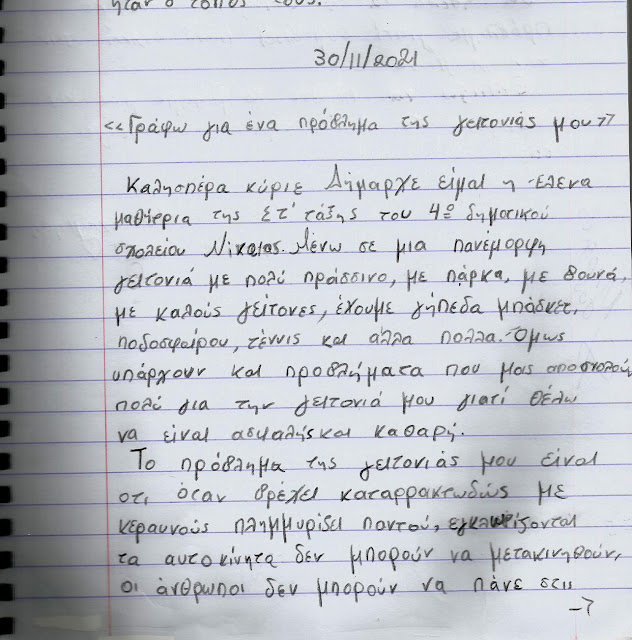 ήταν ο τόπος τους.
30/11/2021
<<Γράφω για ένα πρόβλημα της γειτονιάς μου>>
Καλησπέρα κύριε Δήμαρχε είμαι η Έλενα
μαθήτρια της Στ' τάξης του 4ου δημοτικού
σχολείου Νίκαιας. Μένω σε μια πανέμορφη
γειτονιά με πολύ πράσσινο, με πάρκα, με βουνά,
με καλούς γείτονες, έχουμε γήπεδα μπάσκετ,
ποδοσφαίρου, τέννις και άλλα πολλα. Όμως
υπάρχουν και προβλήματα που μας απασχολούν
πολύ για την γειτονιά μου γιατί θέλω
να είναι ασφαλής και καθαρή.
Το πρόβλημα της γειτονιάς μου είναι
οτι όταν βρέχει καταρρακτωδώς με
κεραυνούς πλημμυρίζει παντού, εγκλωβίζονται
τα αυτοκίνητα δεν μπορούν να μετακινηθούν,
οι άνθρωποι δεν μπορούν να πάνε στις
→